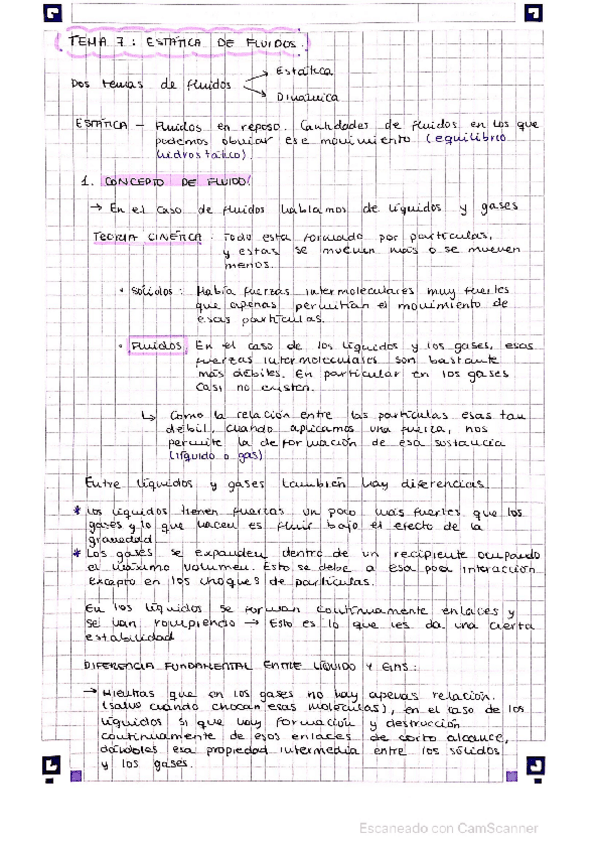 TEMA 7: ESTÁTICA DE FLUIDOS.
Dos temas de fluidos → Estática
→ Dinámica
ESTÁTICA - Fluidos en reposo. Cantidades de fluidos en los que
podemos obviar ese movimiento (equilibrio
hidrostático).
1. CONCEPTO DE FLUIDO:
→ En el caso de fluidos hablamos de líquidos y gases
TEORIA CINÉTICA: Todo esta formado por partículas,
y estas se mueven más o se mueven
menos.
• Sólidos: Había fuerzas intermoleculares muy fuertes
que apenas permitían el movimiento de
esas partículas.
• Fluidos: En el caso de los líquidos y los gases, esas
fuerzas intermoleculares son bastante
más débiles. En particular en los gases
casi no existen.
↳ Como la relación entre las partículas esas tan
débil, cuando aplicamos una fuerza, nos
permite la deformación de esa sustancia
(líquido o gas)
Entre líquidos y gases también hay diferencias.
* Los líquidos tienen fuerzas un poco más fuertes que los
gases y lo que hacen es fluir bajo el efecto de la
gravedad.
* Los gases se expanden dentro de un recipiente ocupando
el máximo volumen. Esto se debe a esa poca interacción
excepto en los choques de partículas.
En los líquidos se forman continuamente enlaces y
se van rompiendo → Esto es lo que les da una cierta
estabilidad
DIFERENCIA FUNDAMENTAL ENTRE LÍQUIDO Y GAS:
→ Mientras que en los gases no hay apenas relación.
(salvo cuando chocan esas moléculas), en el caso de los
líquidos si que hay formación y destrucción
continuamente de esos enlaces de corto alcance,
dándoles esa propiedad intermedia entre los sólidos
y los gases.
Escaneado con CamScanner